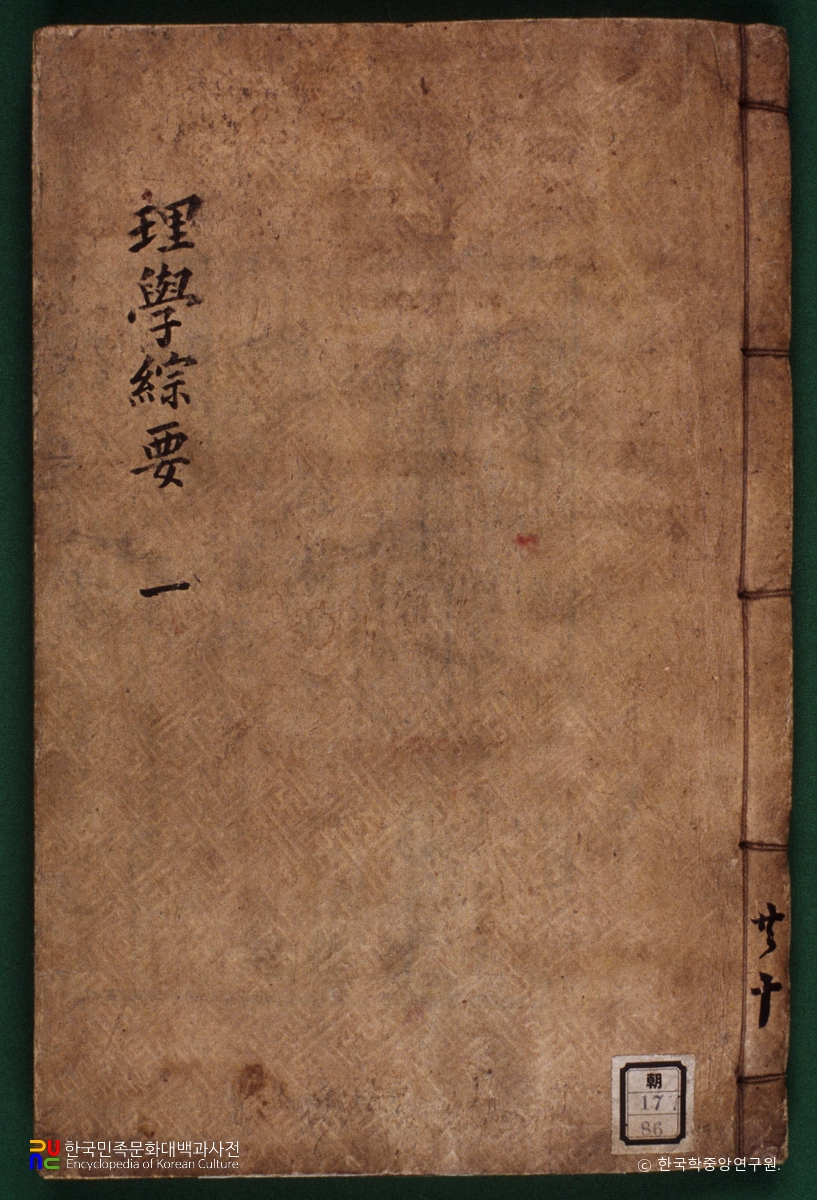 理學綜要 一
共十
朝
17
86
한국민족문화대백과사전
Encyclopedia of Korean Culture
© 한국학중앙연구원.